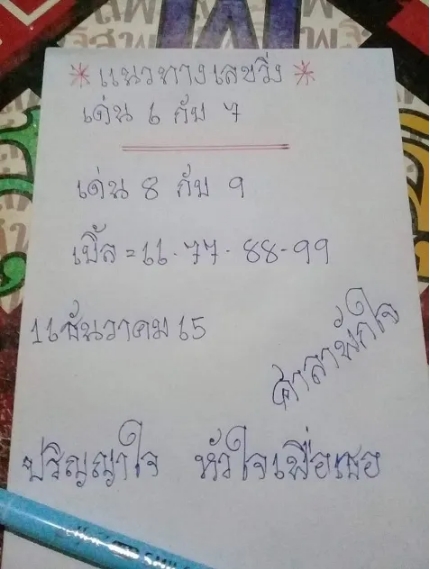 * แนวทางเลขวิ่ง *
เด่น 6 กับ 7
เด่น 8 กับ 9
เบิ้ล = 66-77-88-99
16 ธันวาคม 65
ศาลาพักใจ
ปริญญาใจ หัวใจเพื่อเธอ